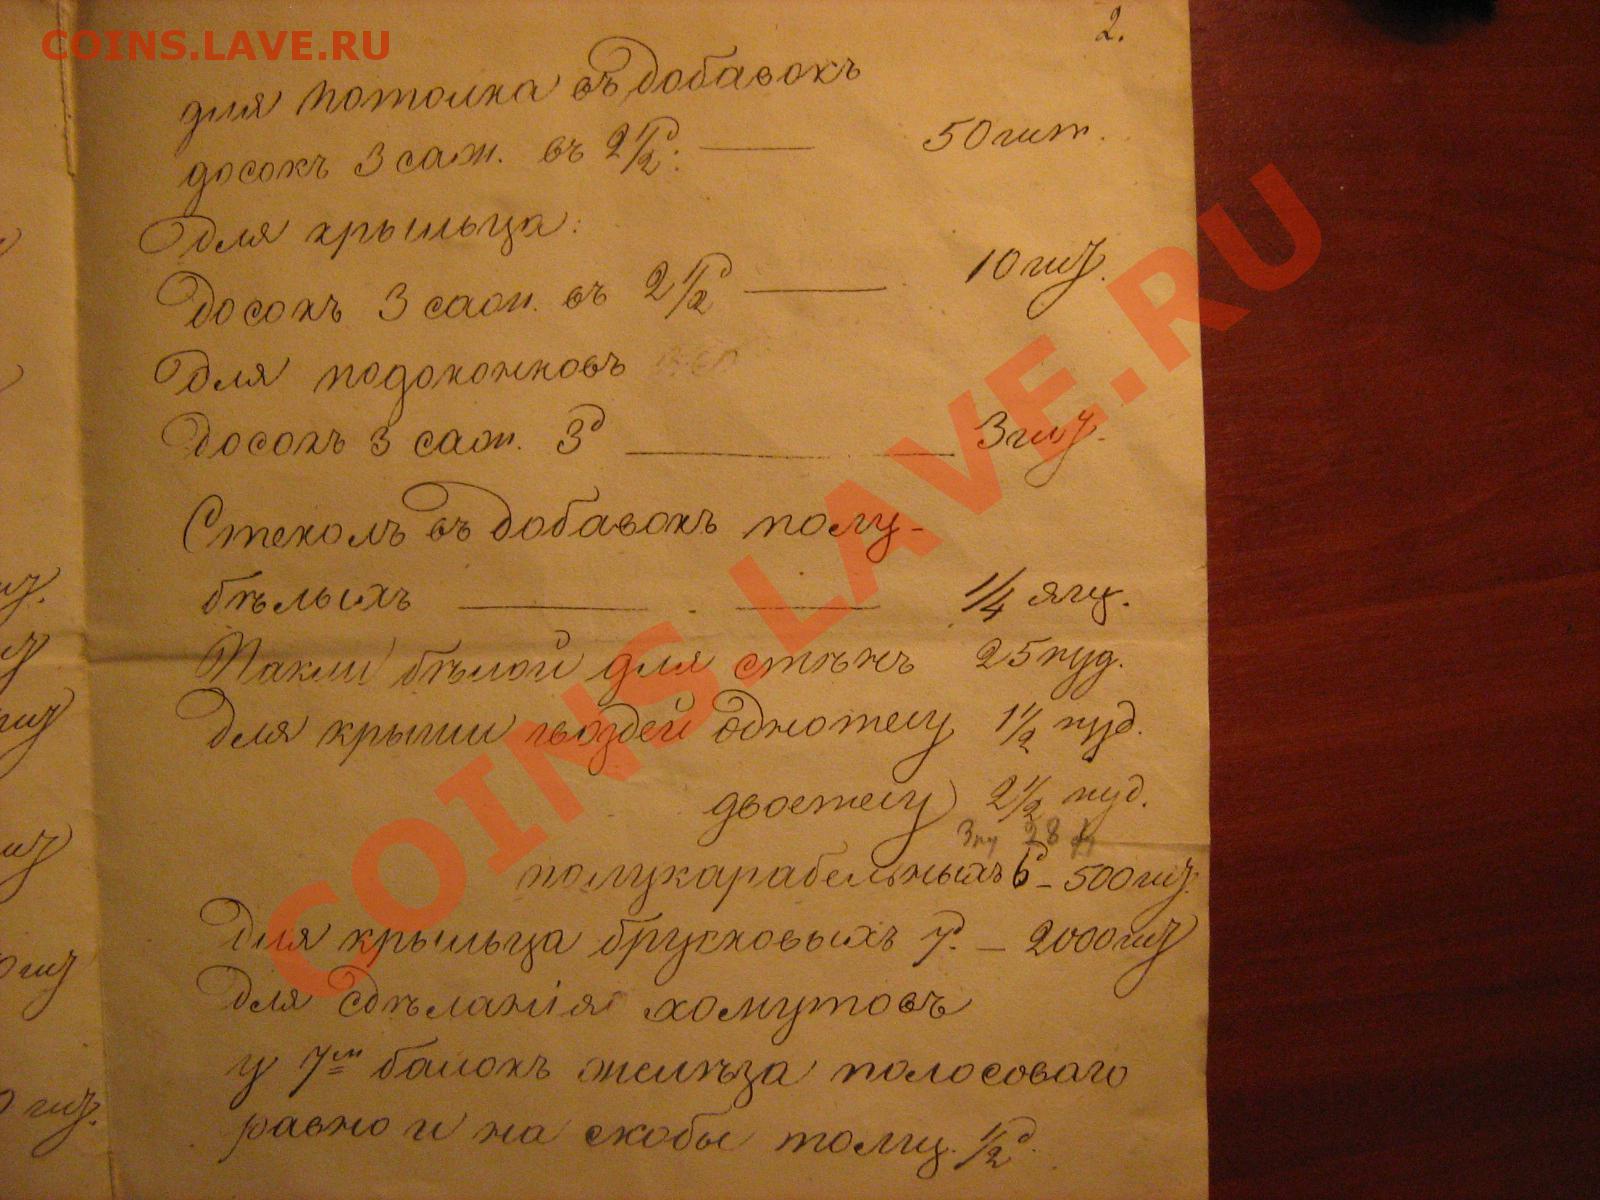 COINS.LAVE.RU
2.
для потолка въ добавокъ
досокъ 3 саж. въ 2 1/2д: — 50 шт.
Для крыльца:
Досокъ 3 саж. въ 2 1/2д — 10 шту.
Для подоконковъ
Досокъ 3 саж. 3д — 3 шту.
Стеколъ въ добавокъ полу-
бѣлыхъ — 1/4 ящ.
Пакли бѣлой для стѣнъ 25 пуд.
Для крыши гвоздей однотесу 1 1/2 пуд.
двоетесу 2 1/2 пуд.
3 пу 28 ф
полукарабельныхъ 6д – 500 шту.
Для крыльца брусковыхъ 7д. – 2000 шту
Для сдѣланія хомутовъ
у 7ми балокъ желѣза полосоваго
равно и на скобы толщ. 1/2д.
COINS.LAVE.RU